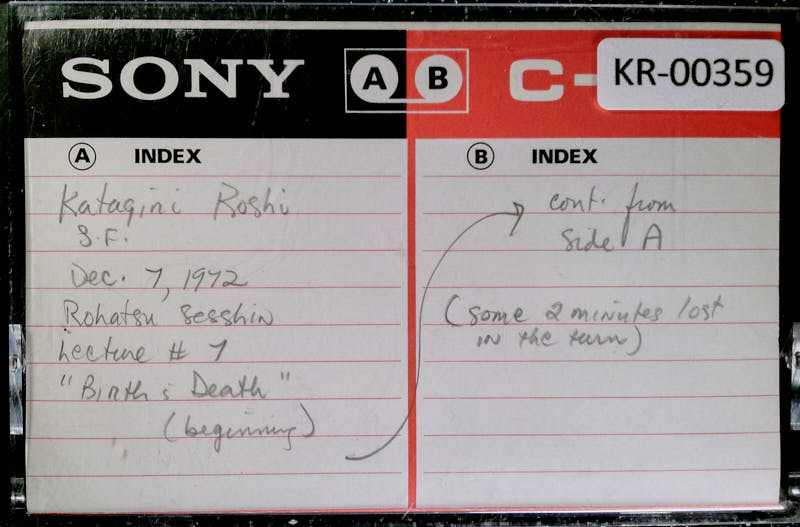 SONY A B C-
KR-00359
A INDEX
Katagiri Roshi
S.F.
Dec. 7, 1972
Rohatsu Sesshin
Lecture # 7
"Birth & Death"
(beginning)
B INDEX
cont. from
Side A
(some 2 minutes lost
in the turn)